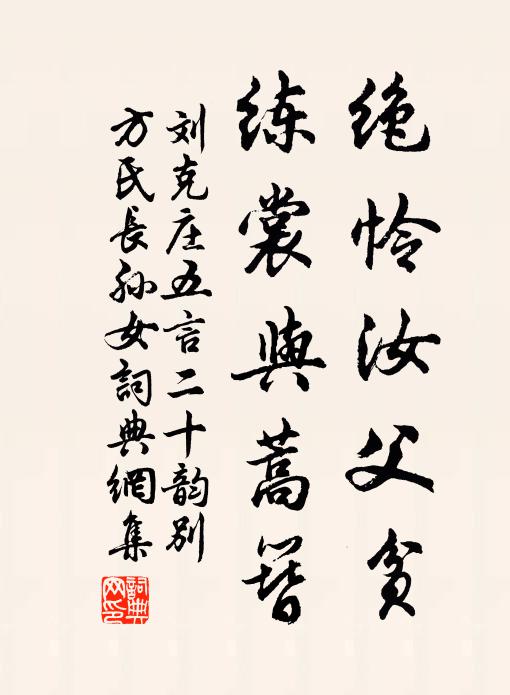 绝怜汝父贫
练裳與蒿簪
刘克庄五言二十韵别
方氏長孙女詞典網集
詞典網印